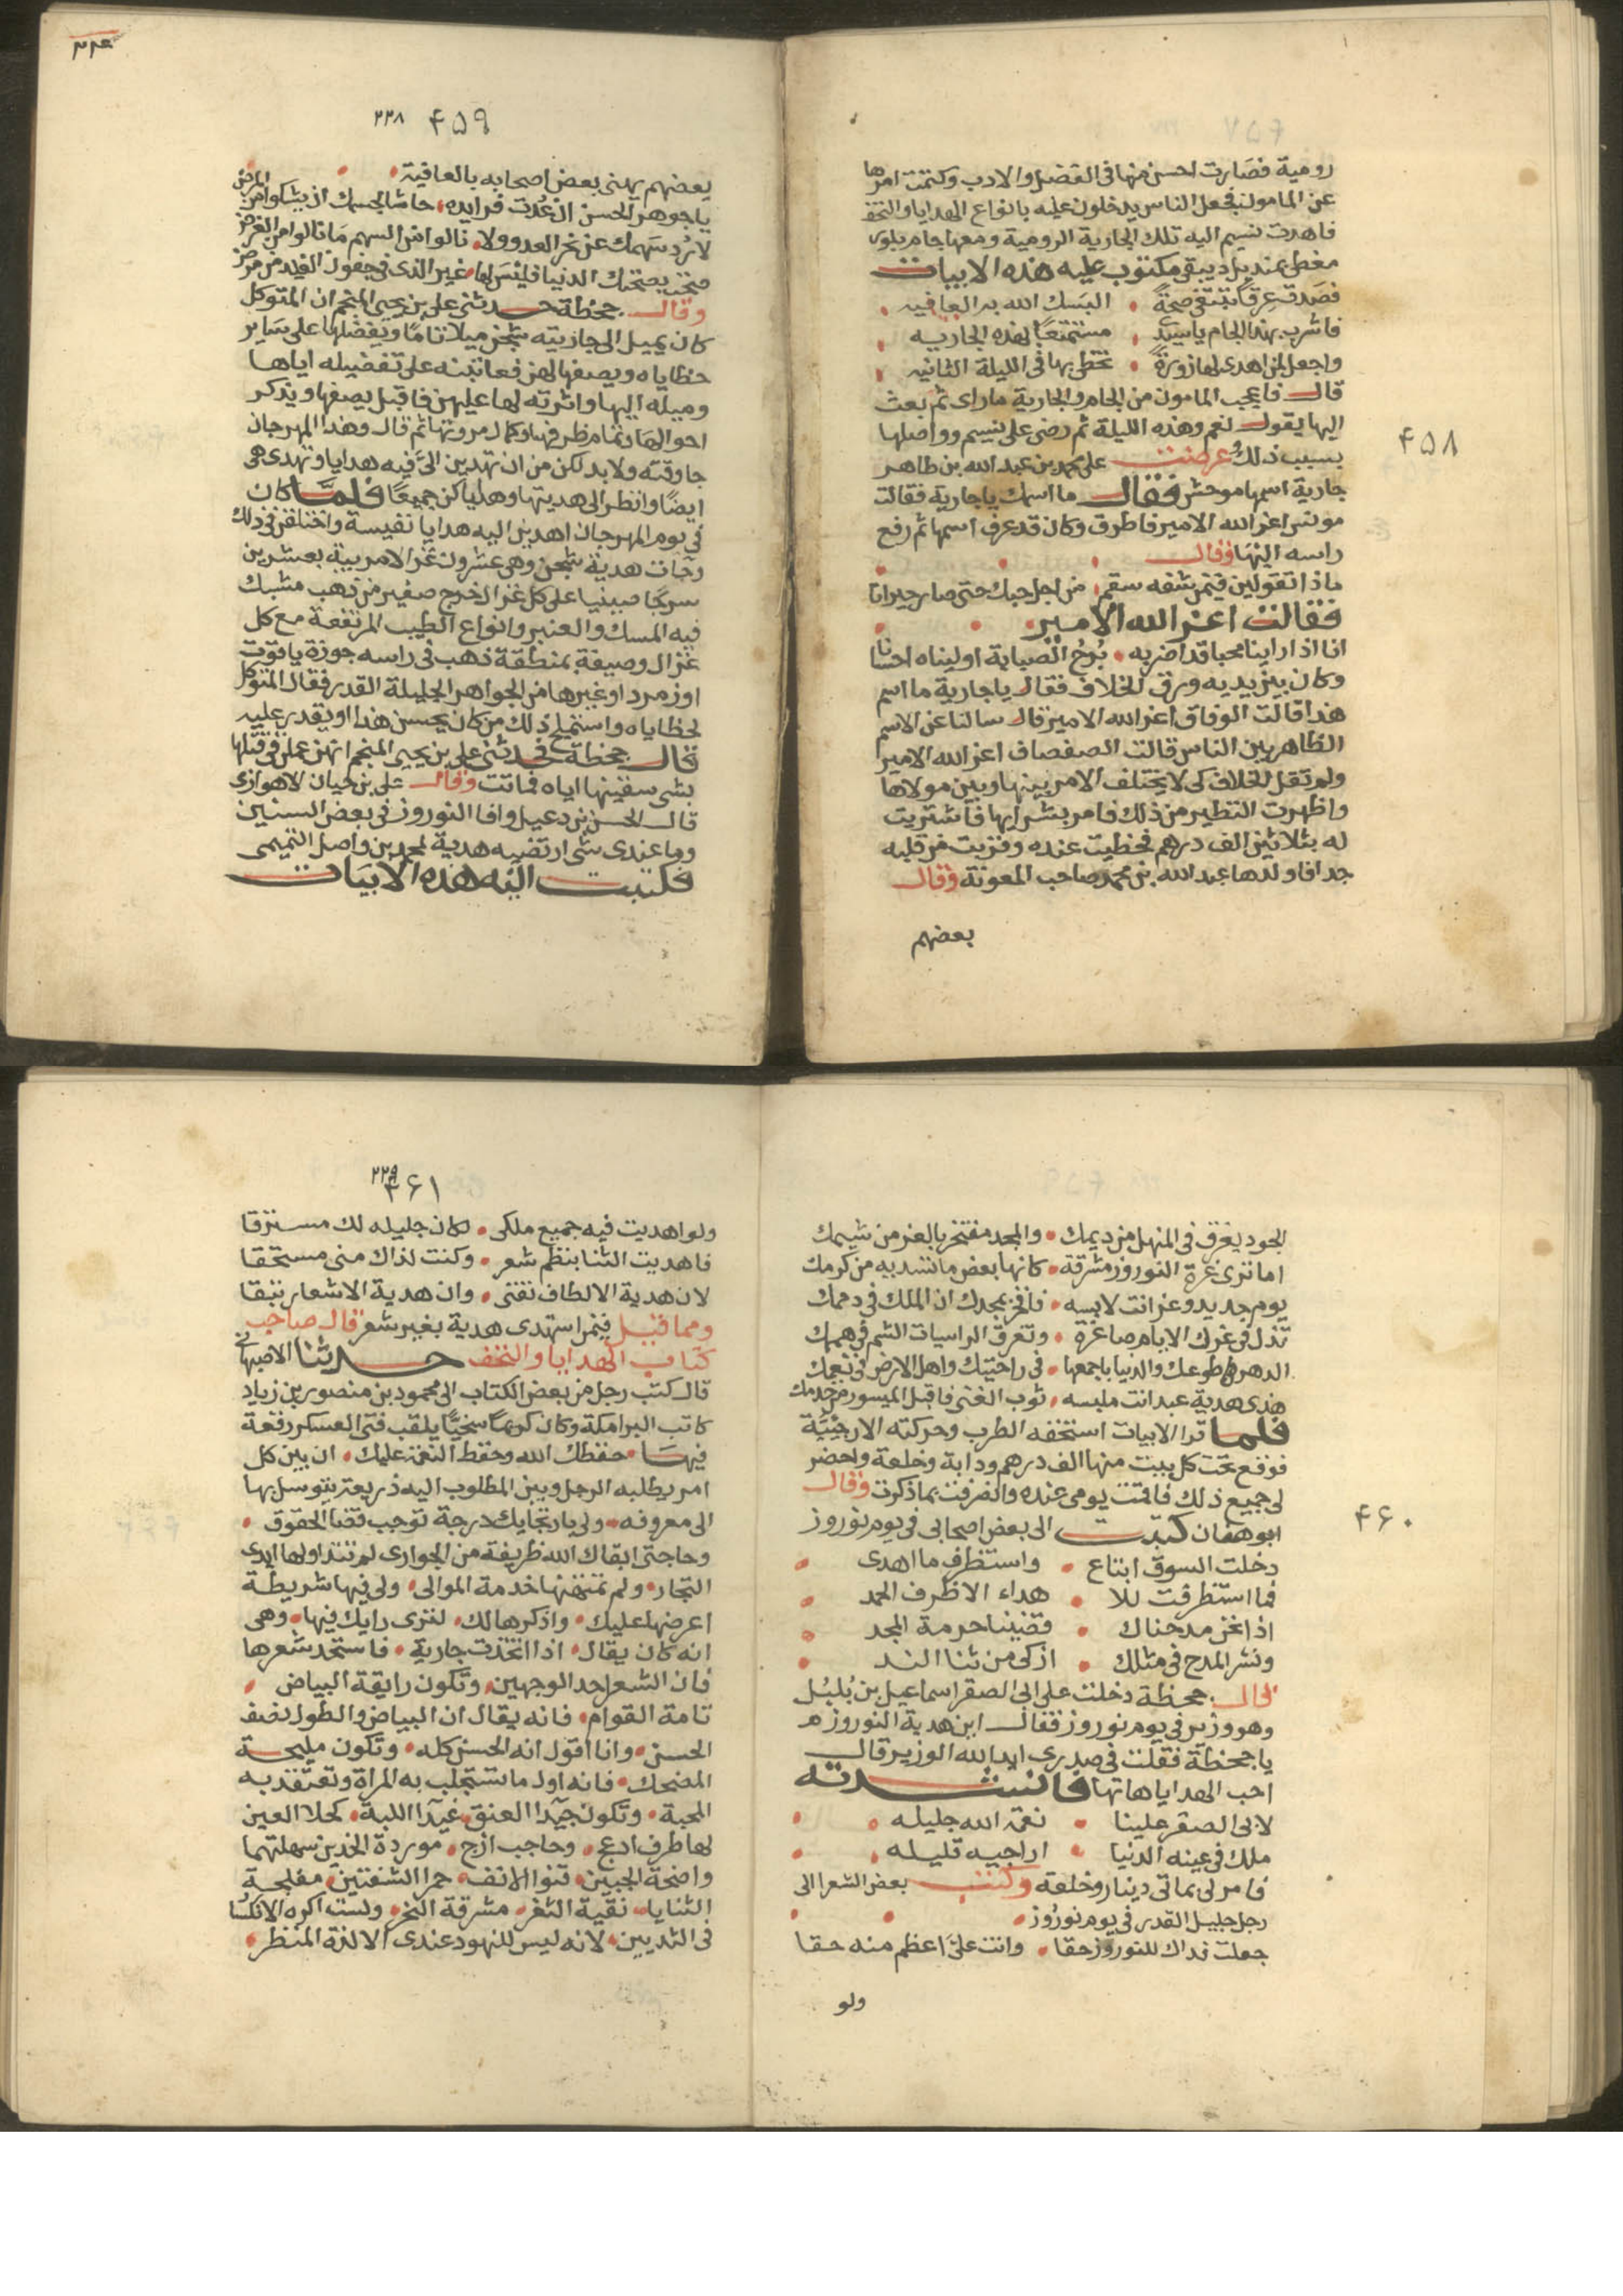 رومية فصارت احسن منها فى الفضل والادب وكتمت امرها
عن المامون فجعل الناس يدخلون عليه بانواع الهدايا والتحف
فاهدت نسيم اليه تلك الجارية الرومية ومعها جام بلور
مغطى بمنديل ديبقى مكتوب عليه هذه الابيات
فصدت عرقا تبتغى صحة • البسك الله به العافيه
فاشرب بهذا الجام ياسيدى • مستمتعا بهذه الجاريه
واجعل لمن اهدى لها زورة • تحظى بها فى الليلة الثانيه
قال فاعجب المامون من الجام والجارية ماراى ثم بعث
اليها يقول نعم وهذه الليلة ثم رضى على نسيم وواصلها
بسبب ذلك وعرضت على محمد بن عبد الله بن طاهر
جارية اسمها موحش فقال ما اسمك ياجارية فقالت
مونس اعز الله الامير فاطرق وكان قد عرف اسمها ثم رفع
راسه اليها وقال
ماذا تقولين فيمن شفه سقم • من اجل حبك حتى صار حيرانا
فقالت اعز الله الامير
انا اذا راينا محبا قد اضر به • برح الصبابة اوليناه احسانا
وكان بين يديه ورق الخلاف فقال ياجارية ما اسم
هذا قالت الوفاق اعز الله الامير قال سالنا عن الاسم
الظاهر بين الناس قالت الصفصاف اعز الله الامير
ولم تقل الخلاف كى لا يختلف الامر بينها وبين مولاها
واظهرت التطير من ذلك فامر بشرايها فاشتريت
له بثلاثين الف درهم فحظيت عنده وقربت من قلبه
جدا فاولدها عبد الله بن محمد صاحب المعونة وقال
بعضهم
٤٥٨
٢٢٨ ٤٥٩
بعضهم يهنى بعض اصحابه بالعافية
ياجوهر الحسن ان عدت فرايده • حاشا لجسمك ان يشكوا من المرض
لا رد سهمك عن نحر العدو ولا • نالوا من السهم ما نالوا من الغرض
صحت بصحتك الدنيا فليس بها • غير الذى فى جفون الغيد من مرض
وقال جحظة حدثنى على بن يحيى المنجم ان المتوكل
كان يميل الى جاريته شجن ميلا تاما ويفضلها على ساير
حظاياه ويصفها لهن فعاتبنه على تفضيله اياها
وميله اليها واثرته لها عليهن فاقبل يصفها ويذكر
احوالها وتمام ظرفها وكمال مروتها ثم قال وهذا المهرجان
جا وقته ولا بد لكن من ان تهدين الى فيه هدايا وتهدى هى
ايضا وانظر الى هديتها وهداياكن جميعا فلما كان
فى يوم المهرجان اهدين اليه هدايا نفيسة واختلفن فى ذلك
وجات هدية شجن وهى عشرون غزالا مربية بعشرين
سرجا صينيا على كل غزال خرج صغير من ذهب مشبك
فيه المسك والعنبر وانواع الطيب المرتفعة مع كل
غزال وصيفة بمنطقة ذهب فى راسه جوزة ياقوت
او زمرد او غيرها من الجواهر الجليلة القدر فقال المتوكل
لحظاياه واستملح ذلك من كان يحسن هذا او يقدر عليه
قال جحظة فحدثنى على بن يحيى المنجم انهن عملن فى قتلها
بشى سقينها اياه فماتت وقال على بن حيان الاهوازى
قال الحسن بن دعبل وافا النوروز فى بعض السنين
وما عندى شى ارتضيه هدية لمحمد بن واصل التميمى
فكتبت اليه هذه الابيات
الجود يغرق فى المنهل من ديمك • والمجد مفتخر بالعز من شيمك
اما ترى غرة النوروز مشرقة • كانها بعض ما تسديه من كرمك
يوم جديد وعز انت لابسه • فافخر بمجدك ان الملك فى دممك
تذل فى عزك الايام صاغرة • وتغرق الراسيات الشم فى هممك
الدهر طوعك والدنيا باجمعها • فى راحتيك واهل الارض فى نعمك
هذى هدية عبد انت ملبسه • ثوب الغنى فاقبل الميسور من خدمك
فلما قرا الابيات استخفه الطرب وحركته الاريحية
فوقع تحت كل بيت منها الف درهم ودابة وخلعة واحضر
لى جميع ذلك فاتممت يومى عنده وانصرفت بما ذكرت وقال
ابو هفان كتبت الى بعض اصحابى فى يوم نوروز
دخلت السوق ابتاع • واستظرف ما اهدى
فما استظرفت للا • هداء الا ظرف الحمد
اذا نحن مدحناك • قضينا حرمة المجد
ونشر المدح فى مثلك • ازكى من ثنا الند
قال جحظة دخلت على ابى الصقر اسماعيل بن بلبل
وهو وزير فى يوم نوروز فقال اين هدية النوروز
يا جحظة فقلت فى صدرى ايد الله الوزير قال
احب الهدايا هاتها فانشدته
لابى الصقر علينا • نعم الله جليله
ملك فى عينه الدنيا • لراجيه قليله
فامر لى بماتى دينار وخلعة وكتب بعض الشعرا الى
رجل جليل القدر فى يوم نوروز
جعلت فداك للنوروز حقا • وانت على اعظم منه حقا
ولو
٤٦٠
٢٢٩
٤٦١
ولو اهديت فيه جميع ملكى • لكان جليله لك مسترقا
فاهديت الثنا بنظم شعر • وكنت لذاك منى مستحقا
لان هدية الالطاف تفنى • وان هدية الاشعار تبقا
ومما قيل فيمن استهدى هدية بغير شعر قال صاحب
كتاب الهدايا والتحف حدثنا الاصبهانى
قال كتب رجل من بعض الكتاب الى محمود بن منصور بن زياد
كاتب البرامكة وكان كريما سخيا يلقب فتى العسكر رقعة
فيها • حفظك الله وحفظ النعم عليك • ان بين كل
امر يطلبه الرجل وبين المطلوب اليه ذريعة يتوسل بها
الى معروفه • ولى بارتجايك درجة توجب قضا الحقوق
وحاجتى ابقاك الله ظريفة من الجوارى لم تتداولها ايدى
التجار • ولم تمتهنها خدمة الموالى • ولى فيها شريطة
اعرضها عليك • واذكرها لك • لترى رايك فيها • وهى
انه كان يقال • اذا اتخذت جارية • فاستجد شعرها
فان الشعر احد الوجهين • وتكون رايقة البياض
تامة القوام • فانه يقال ان البياض والطول نصف
الحسن • وانا اقول انه الحسن كله • وتكون مليحة
المضحك • فانه اول ما تستجلب به المراة وتعتقد به
المحبة • وتكون جيدا العنق غيدا اللبة • كحلا العين
لها طرف ادعج • وحاجب ازج • موردة الخدين سهلتهما
واضحة الجبين • قنوا الانف • حمرا الشفتين • مفلجة
الثنايا • نقية الثغر • مشرقة النحر • ولست اكره الانكسار
فى الثديين • لانه ليس للنهود عندى الا لذة المنظر